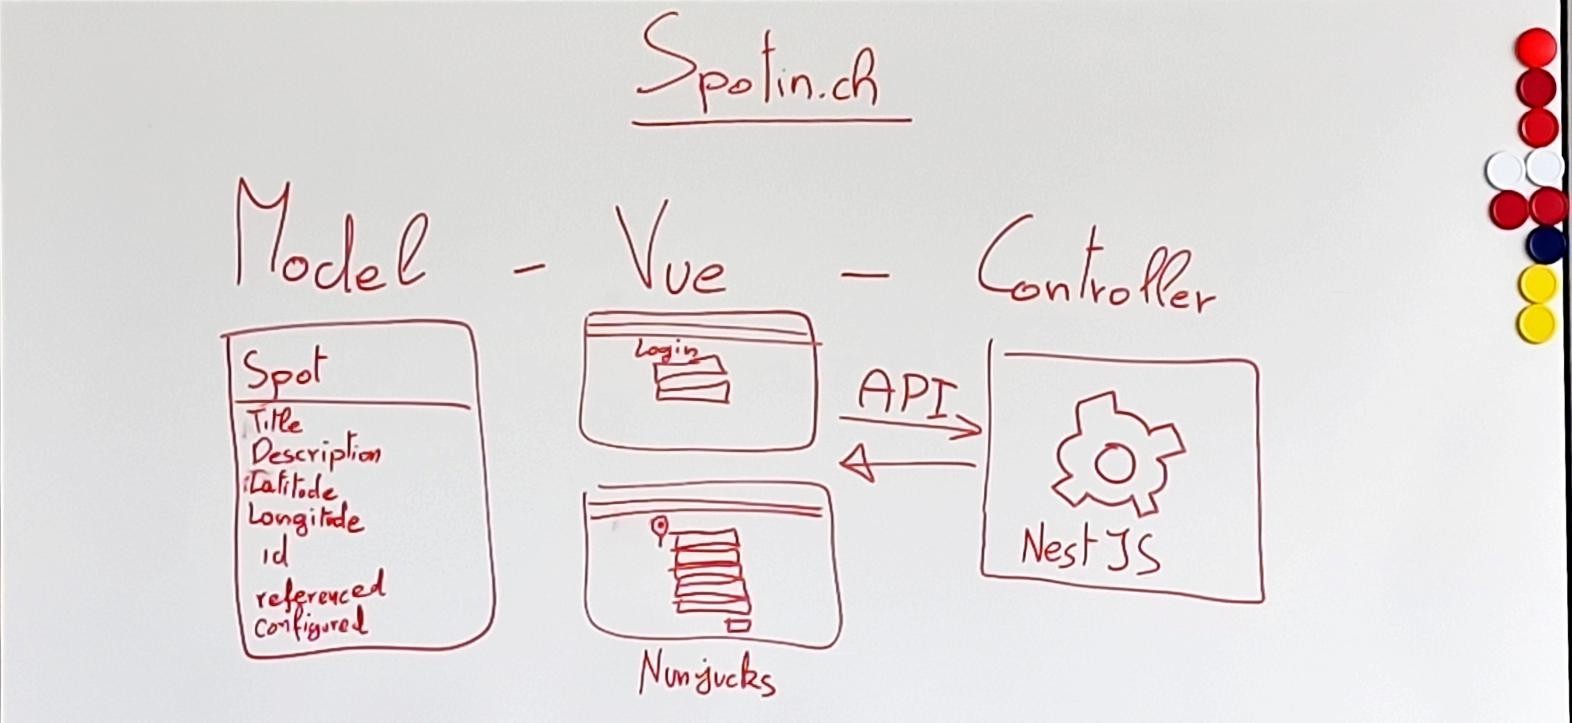 Spotin.ch
Model - Vue - Controller
Spot
Title
Description
Latitude
Longitude
id
referenced
configured
Login
Nunjucks
API
Nest JS